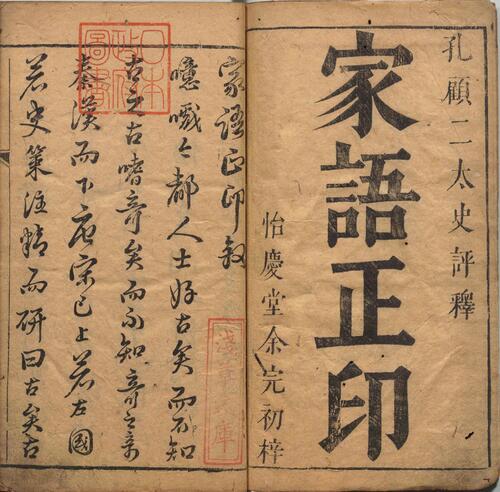 孔顧二太史評釋
家語正印
怡慶堂余完初梓
家語正印敘
噫嚱今都人士好古矣而不知
古之古嗜奇矣而不知奇之奇
秦漢而下唐宋已上若左國
若史策注精而研曰古矣古
日本
政府
圖書
淺草文庫